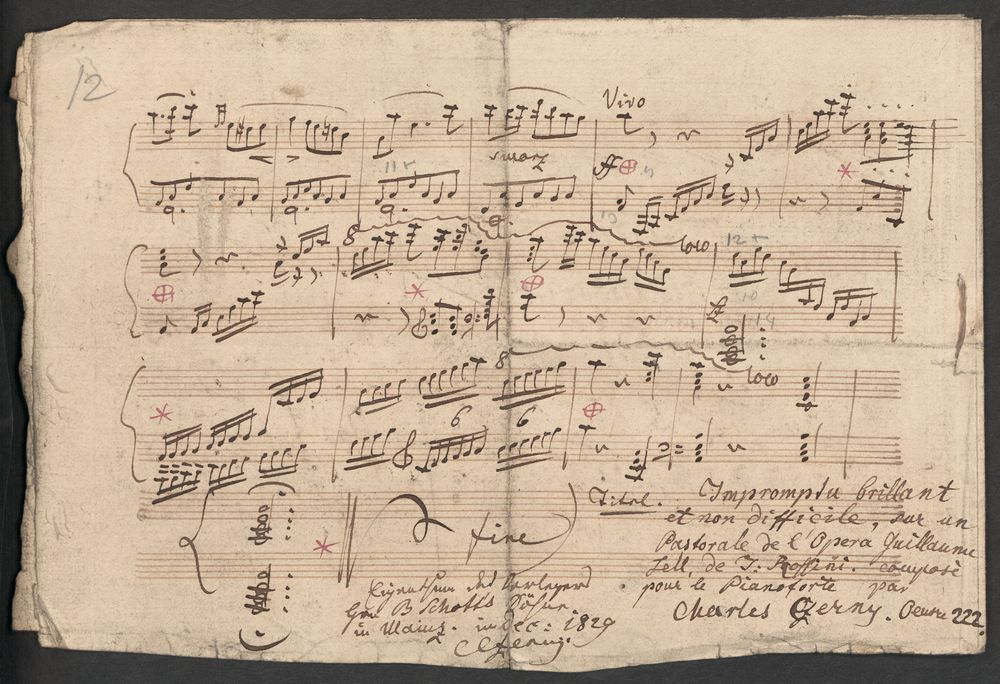 12
Vivo
11+
smorz
ff
8
loco
12+
10
14
8
loco
6
6
fine
Titel. Impromptu brillant
et non difficile, sur un
Pastorale de l'Opera Guillaume
Tell, de J: Rossini. composé
pour le Pianoforte par
Charles Czerny. Oeuvre 222.
Eigenthum des Verlegers
B Schotts Söhne
in Mainz. im Dec: 1829
CCzerny.